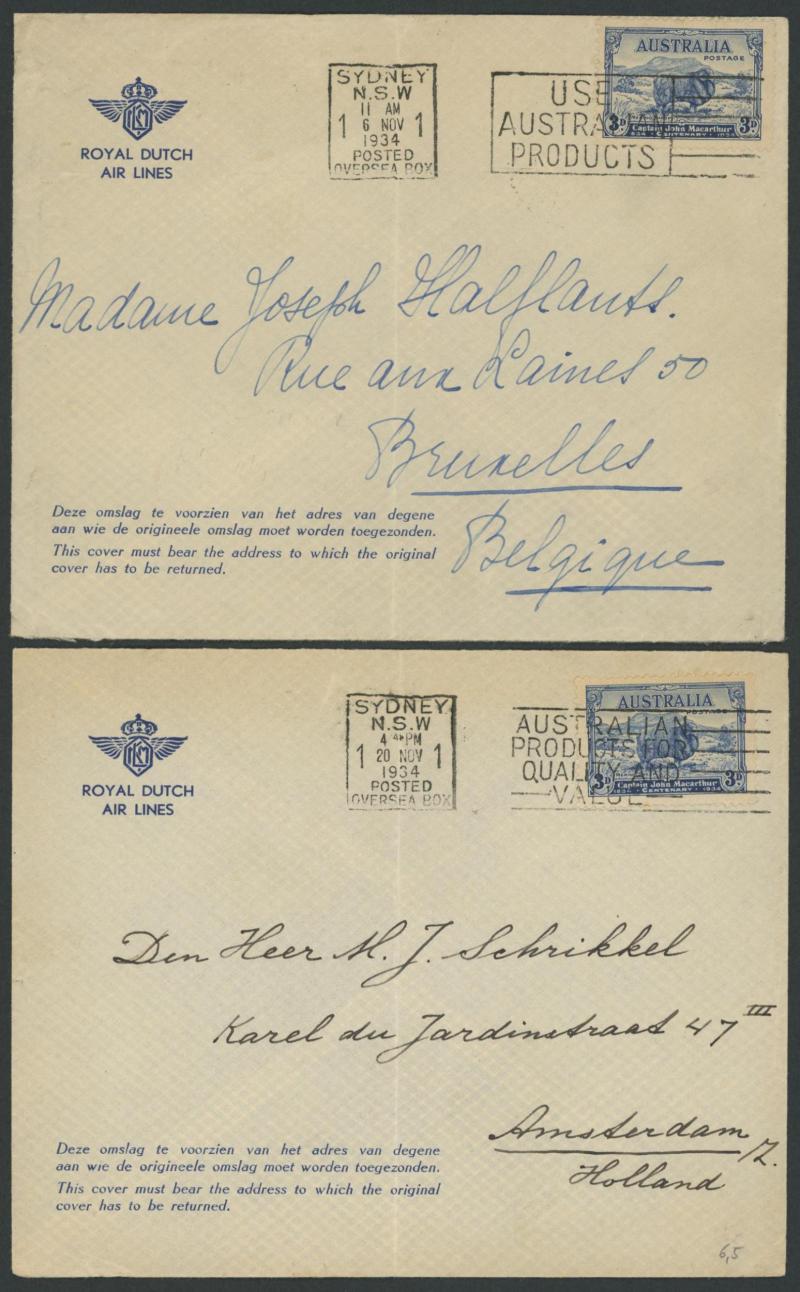 KLM
ROYAL DUTCH
AIR LINES
SYDNEY
N.S.W
11 AM
1 6 NOV 1
1934
POSTED
OVERSEA BOX
USE
AUSTRALIAN
PRODUCTS
AUSTRALIA
POSTAGE
3D Captain John Macarthur 3D
1834 CENTENARY 1934
Madame Joseph Halflants.
Rue aux Laines 50
Bruxelles
Belgique
Deze omslag te voorzien van het adres van degene
aan wie de origineele omslag moet worden toegezonden.
This cover must bear the address to which the original
cover has to be returned.
KLM
ROYAL DUTCH
AIR LINES
SYDNEY
N.S.W
4 PM
1 20 NOV 1
1934
POSTED
OVERSEA BOX
AUSTRALIAN
PRODUCTS FOR
QUALITY AND
VALUE
AUSTRALIA
POSTAGE
3D Captain John Macarthur 3D
1834 CENTENARY 1934
Den Heer M. J. Schrikkel
Karel du Jardinstraat 47 III
Amsterdam
Z.
Holland
Deze omslag te voorzien van het adres van degene
aan wie de origineele omslag moet worden toegezonden.
This cover must bear the address to which the original
cover has to be returned.
6,5